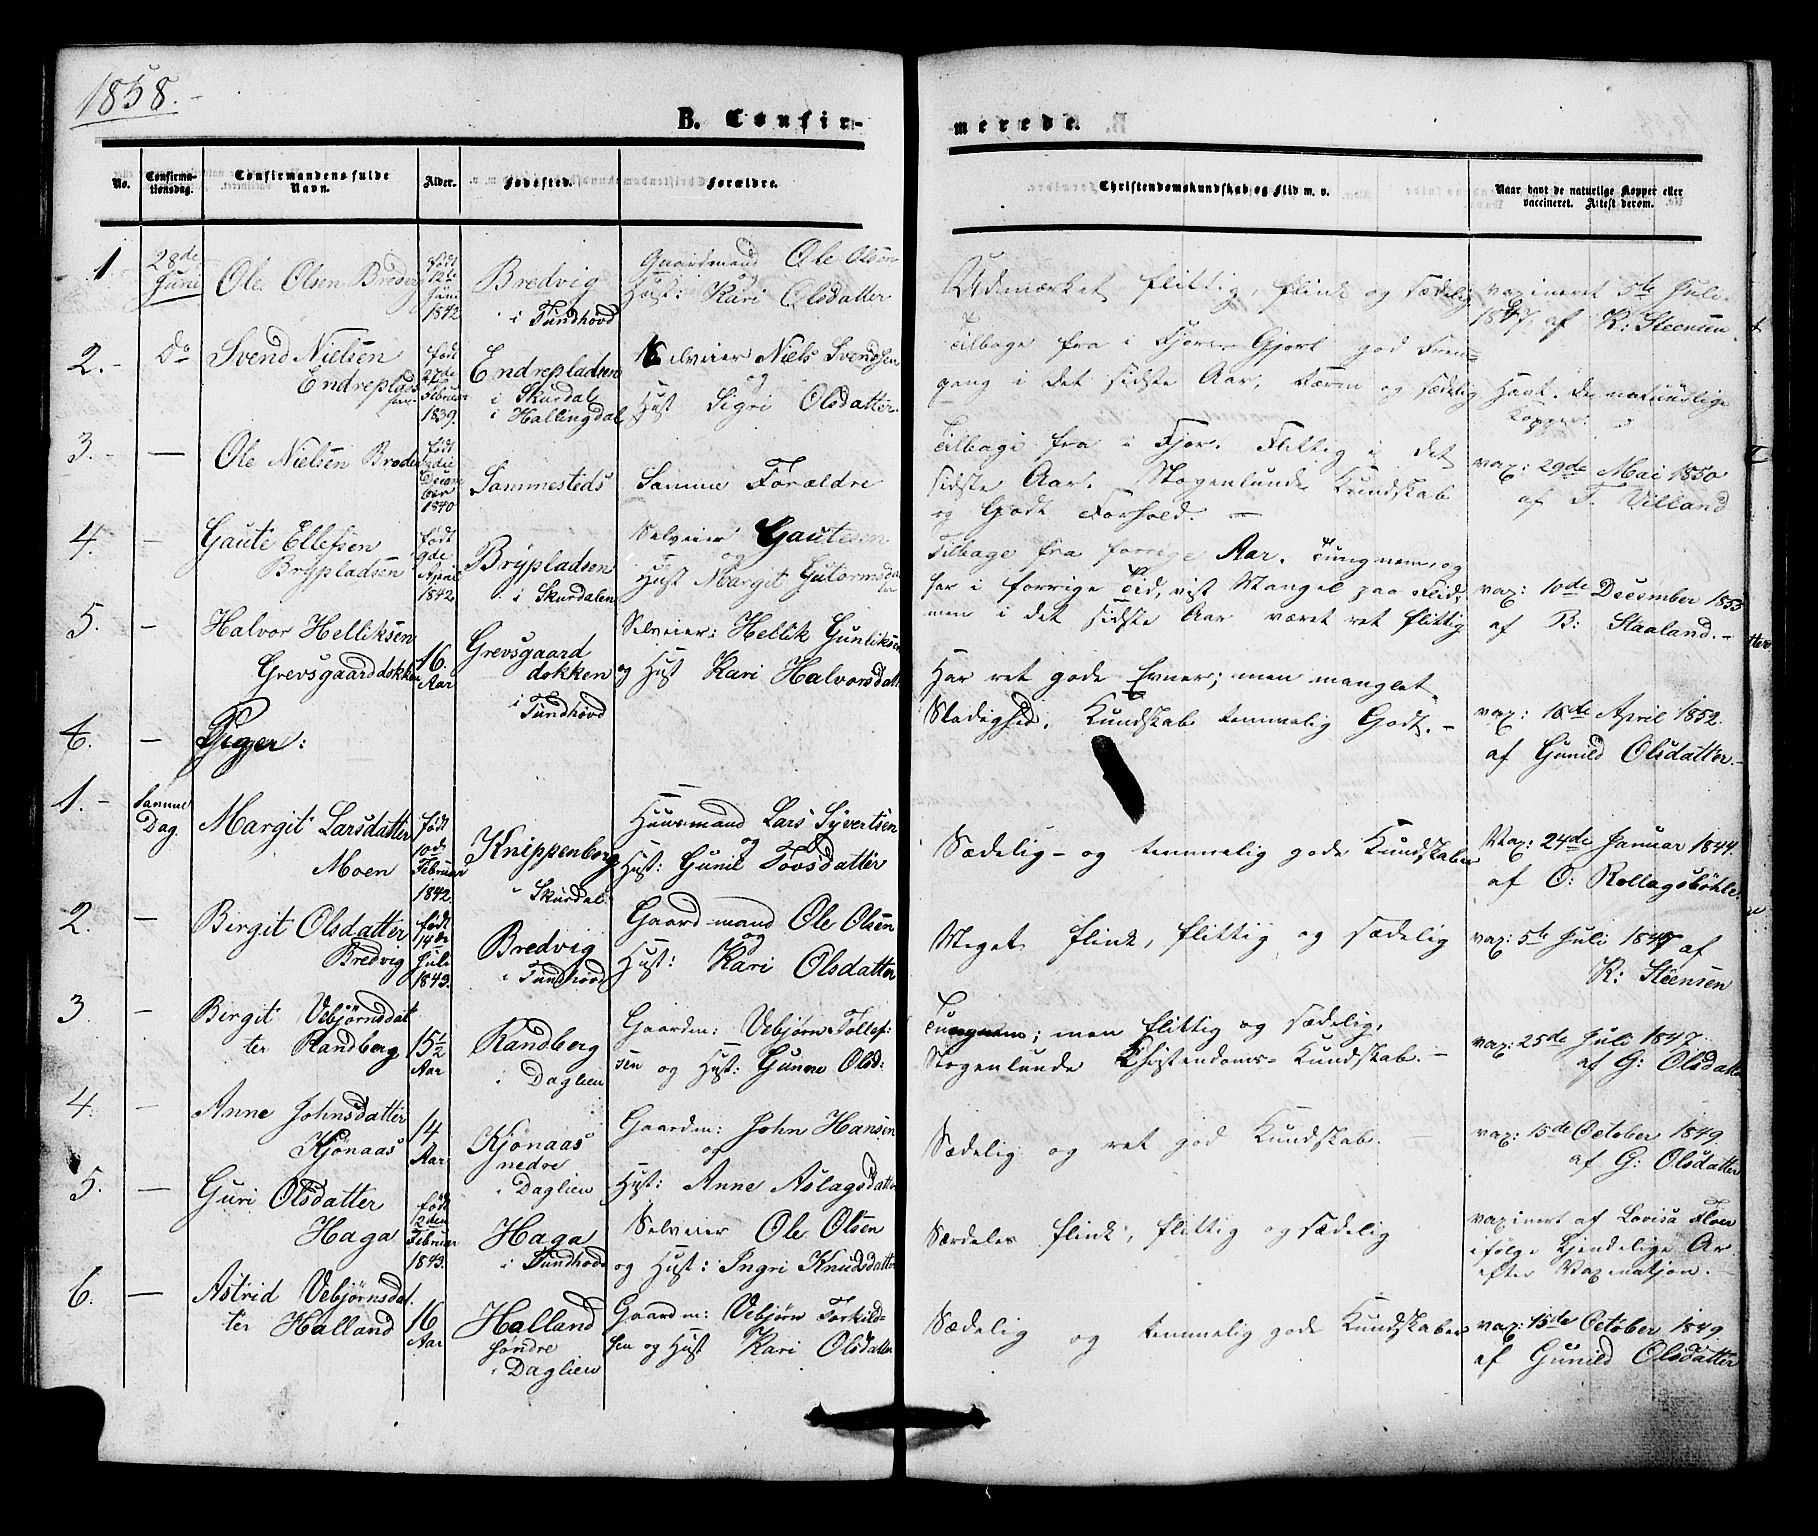 1858.
B. Confir-
merede.
No.
Confirma-
tionsdag.
Confirmandens fulde
Navn.
Alder.
Fødested.
Forældre.
Christendomskundskab og Flid m. v.
Naar havt de naturlige Kopper eller
vaccineret. Attest derom.
1
28de
Juni
Ole Olsen Bredvig
født
12te
Juni
1842
Bredvig
i Tundhovd
Gaardmand Ole Olsen
og
Hust: Kari Olsdatter
Udmærket flittig, flink og sædelig
vaxineret 5te Juli
1847, af K: Steensen
2.
Do
Svend Nielsen
Endreplads
født
27de
Februar
1839.
Endrepladsen
i Skurdal
i Hallingdal
Selveier Niels Svendsen
og
Hust Sigri Olsdatter
Tilbage fra i Fjor. Gjort god Frem-
gang i det sidste Aar, og sædelig
Havt de natuurlige
Kopper.
3.
—
Ole Nielsen
født
Decem
ber
1840
Sammesteds
Samme Forældre
Tilbage fra i Fjor. Flittig i det
sidste Aar. Nogenlunde Kundskab
og Godt Forhold. —
vax: 29de Mai 1850
af T. Villand
4.
—
Gaute Ellefsen
Brypladsen
født
9de
April
1842
Brypladsen
i Skurdalen
Selveier Gautesen
og
Hust Margit Gutormsdat
ter
Tilbage fra forrige Aar. Tungnem, og
har i forrige Tid, vist Mangel paa Flid,
men i det sidste Aar været ret flittig
vax: 10de December 1853
af B: Staaland.-
5.
—
Halvor Helliksen
Grevsgaarddokken
16
Aar
Grevsgaard
dokken
i Tundhovd
Selveier: Hellik Gunliksen
og Hust Kari Halvorsdatt
Har ret gode Evner; men manglet
Stadighed. Kundskab temmelig Godt. —
vax: 18de April 1852.
af Gunild Olsdatter.-
—
Piger:
1.-
Samme
Dag.
Margit Larsdatter
Moen
født
10de
Februar
1842
Knippenborg
i Skurdal
Huusmand Lars Syvertsen
og
Hust: Gunil Tovsdatter
Sædelig- og temmelig gode Kundskaber
Vax: 24de Januar 1844.
af O: Rollagsbøhle
2.
—
Birgit Olsdatter
Bredvig
født
14de
Juli
1843.
Bredvig
i Tundhovd
Gaardmand Ole Olsen
og
Hust: Kari Olsdatter
Meget flink, flittig og sædelig
vax: 5te Juli 1847 af
K: Steensen
3.
—
Birgit Vebjørnsdat
ter Randberg
15½
Aar
Randberg
i Daglien
Gaardm: Vebjørn Tollef:
sen og Hust: Gunne Olsd:
Tungnem; men flittig og sædelig,
Nogenlunde Christendoms-Kundskab.-
vax: 25de Juli 1847.
af G: Olsdatter
4.
—
Anne Johnsdatter
Kjønaas
14
Aar
Kjønaas
nedre
i Daglien
Gaardm: John Hansen
og
Hust: Anne Aslagsdatter
Sædelig og ret god Kundskab. —
vax: 15de October 1849.
af G: Olsdatter
5.
—
Guri Olsdatter
Haga
født
12den
Februar
1843.
Haga
i Tundhovd
Selveier Ole Olsen
og Hust: Ingri Knudsdatter
Særdeles flink, flittig og sædelig
vaxinert af Lovisa
ifølge kjendelige Ar
efter Vaxinatjon.
6.
—
Astrid Vebjørnsdat.
ter Halland
16
Aar
Halland
søndre
i Daglien
Gaardm: Vebjørn Torkild-
sen og Hust Kari Olsdatter
Sædelig og temmelig gode Kundskaber
vax: 15de October 1849.
af Gunild Olsdatter